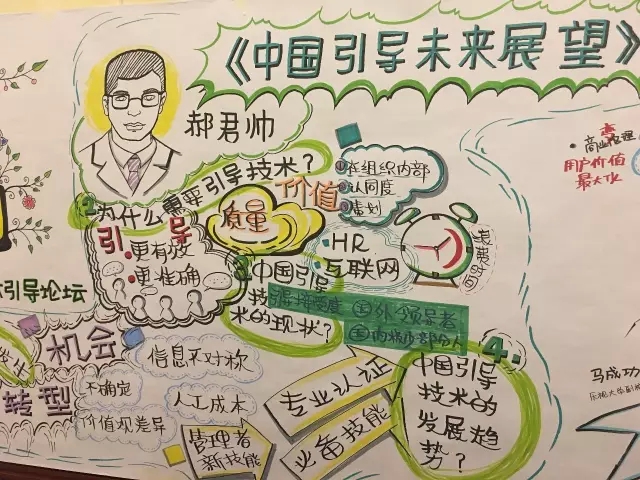 《中国引导未来展望》
郝君帅
2.为什么需要引导技术?
引导
更有效
更准确
质量
价值
①在组织内部
②认同度
③策划
HR
互联网
3.中国引导
技术的现状?
①外 领导者
②内
4.
中国引导
技术的
发展趋
势?
引导论坛
机会
转型
信息不对称
不确定
价值观差异
人工成本
管理者
新技能
专业认证
必备技能
用户价值
最大化
马成功